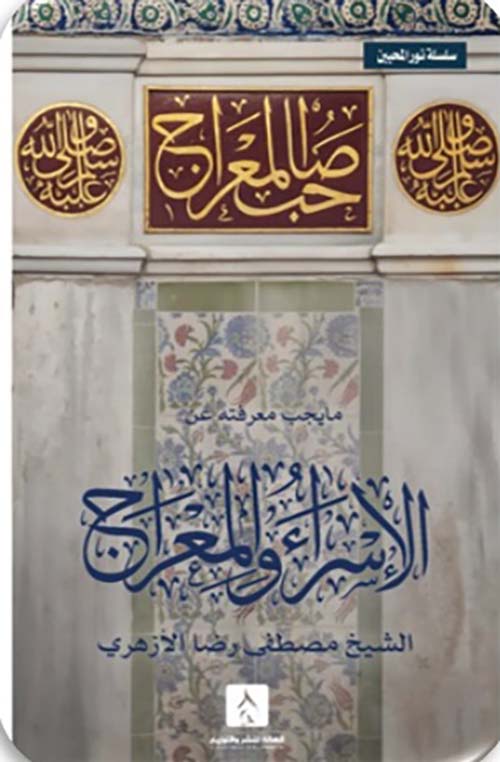 سلسلة نور المحبين
صاحب المعراج
صلى الله عليه وسلم
صلى الله عليه وسلم
مايجب معرفته عن
الإسراء والمعراج
الشيخ مصطفى رضا الأزهري
للنشر والتوزيع